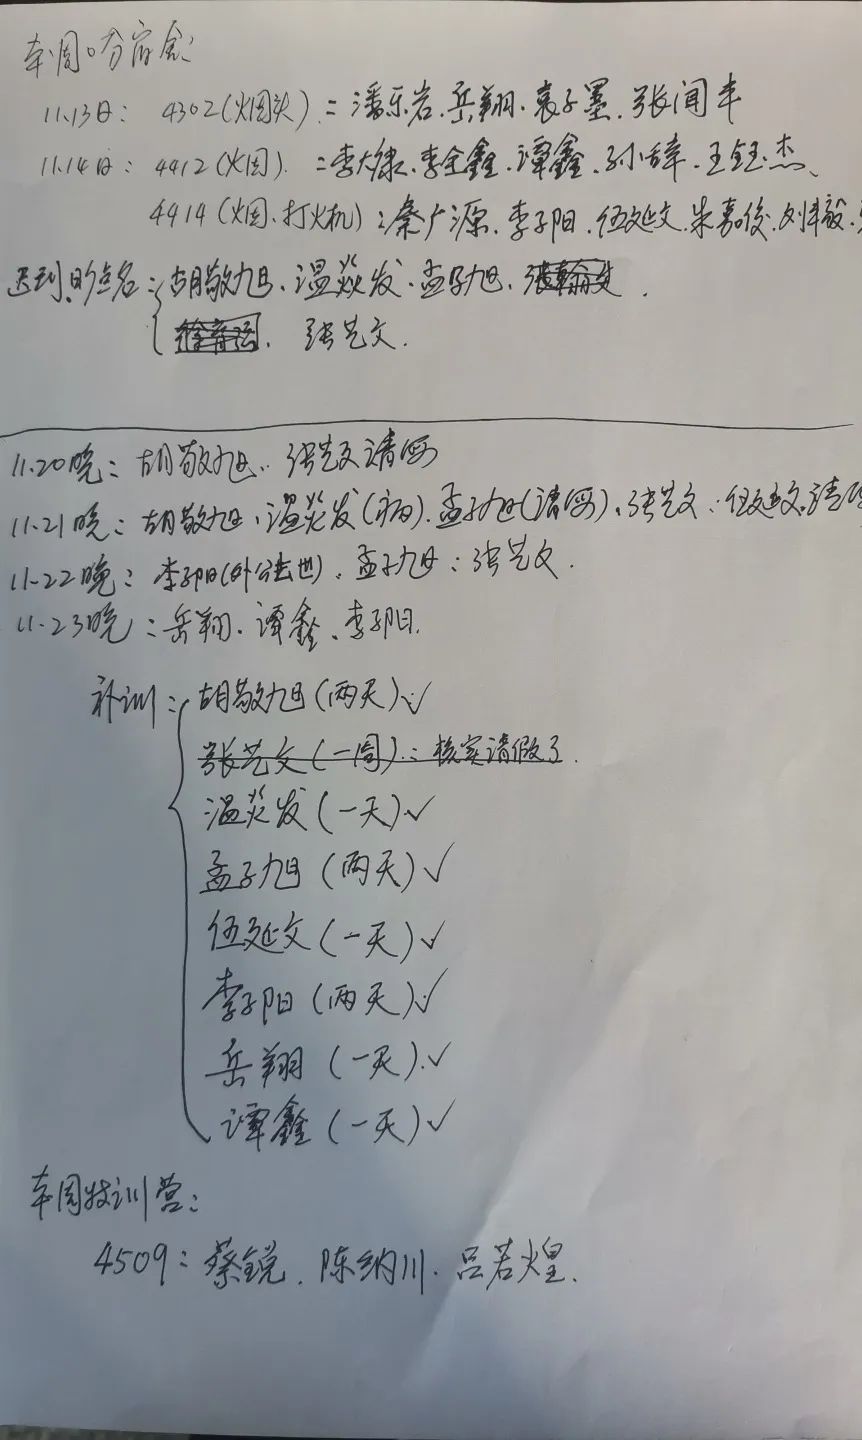 本周口扣分宿舍:
11.13日: 4302(烟头): 潘乐岩、岳翔、袁子墨、张闻丰
11.14日: 4412(烟): 李大缘、李全鑫、谭鑫、孙辞、王钰杰、
4414(烟、打火机): 秦广源、李子阳、伍延文、朱嘉俊、刘毅、
迟到、点名: 胡敬旭、温焱发、孟子旭、
张艺文.
11.20晚: 胡敬旭、张艺文请假
11.21晚: 胡敬旭、温炎发(病)、孟子旭(请假)、张艺文、伍延文请
11.22晚: 李子阳(外公去世)、孟子旭、张艺文.
11.23晚: 岳翔、谭鑫、李子阳.
补训: 胡敬旭(两天)✓
张艺文(一周): 核实请假了.
温炎发(一天)✓
孟子旭(两天)✓
伍延文(一天)✓
李子阳(两天)✓
岳翔(一天)✓
谭鑫(一天)✓
本周特训营:
4509: 蔡锐、陈纳川、吕若煌.